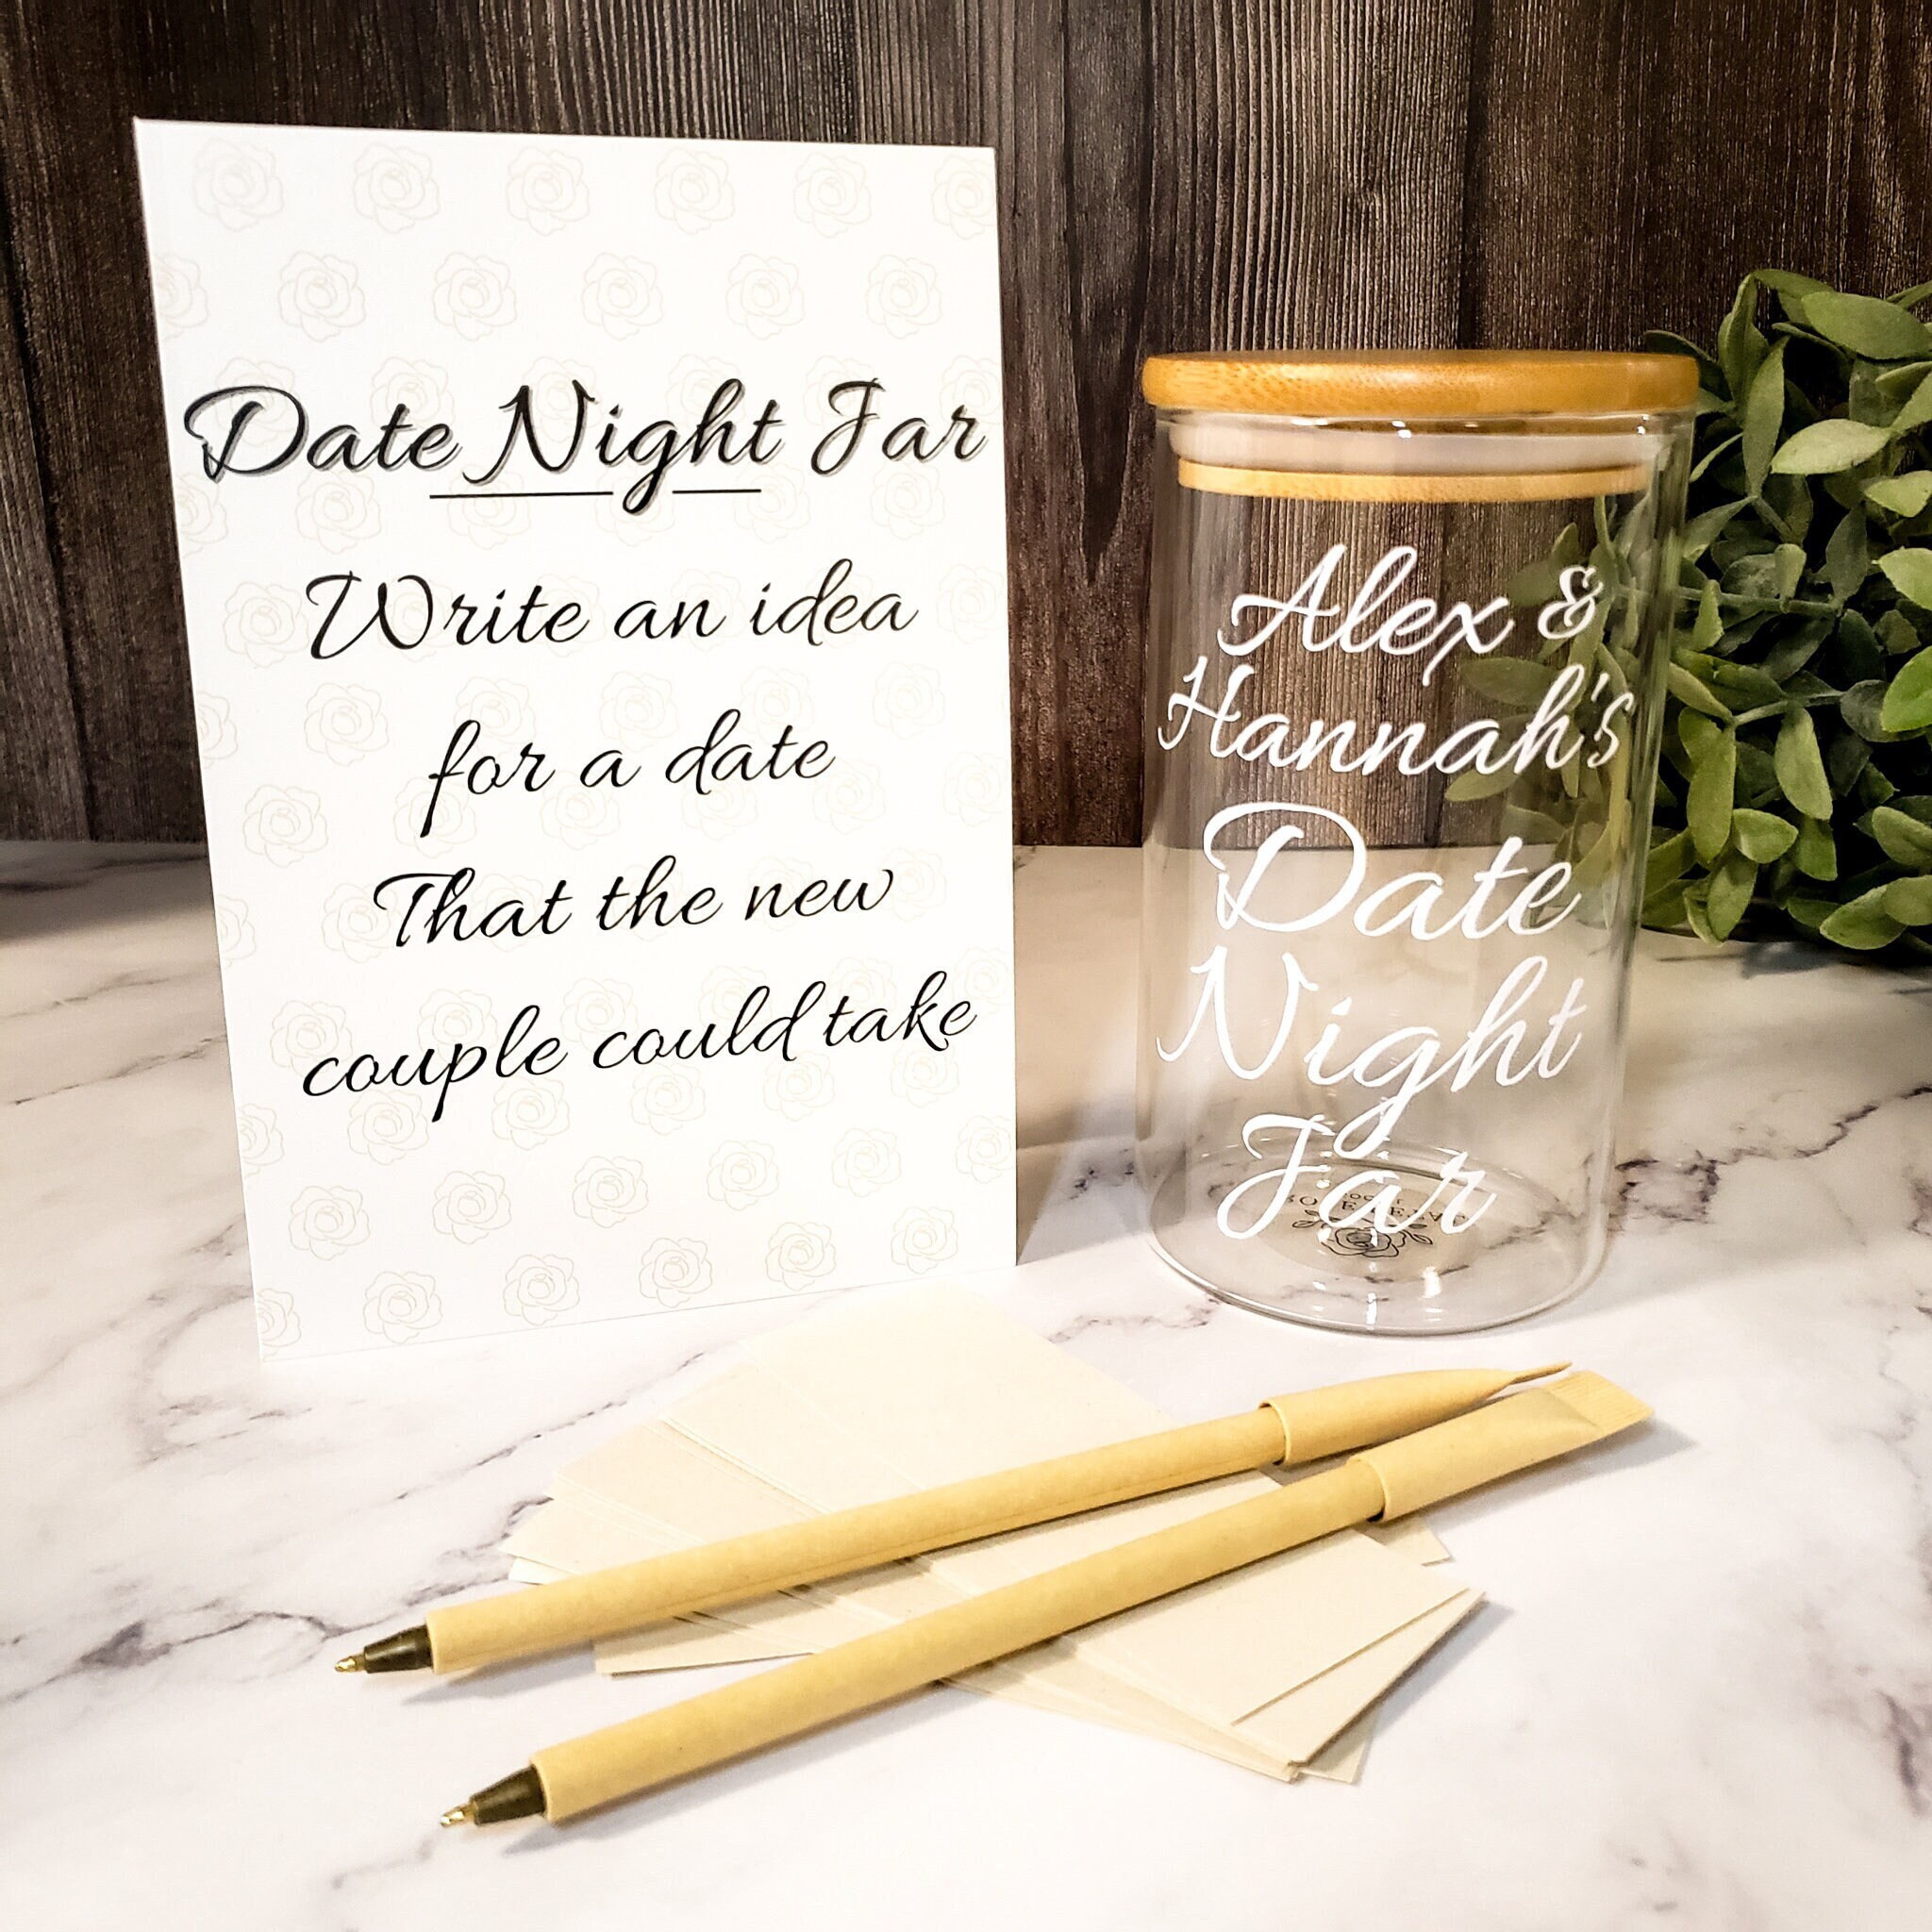 Date Night Jar
Write an idea
for a date
That the new
couple could take
Alex &
Hannah's
Date
Night
Jar